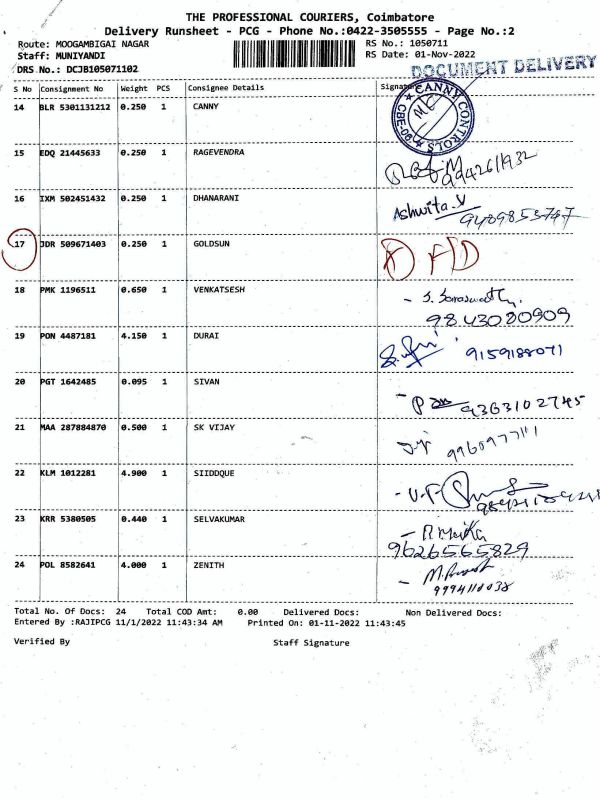 THE PROFESSIONAL COURIERS, Coimbatore
Delivery Runsheet - PCG - Phone No.:0422-3505555 - Page No.:2
Route: MOOGAMBIGAI NAGAR RS No.: 1050711
Staff: MUNIYANDI RS Date: 01-Nov-2022
DRS No.: DCJB105071102 DOCUMENT DELIVERY
S No Consignment No Weight PCS Consignee Details Signature
14 BLR 5301131212 0.250 1 CANNY CANNY CONTROLS CBE-06
15 EDQ 21445633 0.250 1 RAGEVENDRA
9942611932
16 IXM 502451432 0.250 1 DHANARANI Ashwita.V
9489855747
17 JDR 509671403 0.250 1 GOLDSUN
18 PMK 1196511 0.650 1 VENKATSESH - S. Saraswathy.
9843080909
19 PON 4487181 4.150 1 DURAI 9159188071
20 PGT 1642485 0.095 1 SIVAN 9363102745
21 MAA 287884870 0.500 1 SK VIJAY
22 KLM 1012281 4.900 1 SIIDDQUE
23 KRR 5380505 0.440 1 SELVAKUMAR
9626565829
24 POL 8582641 4.000 1 ZENITH
9994110038
Total No. Of Docs: 24 Total COD Amt: 0.00 Delivered Docs: Non Delivered Docs:
Entered By :RAJIPCG 11/1/2022 11:43:34 AM Printed On: 01-11-2022 11:43:45
Verified By Staff Signature